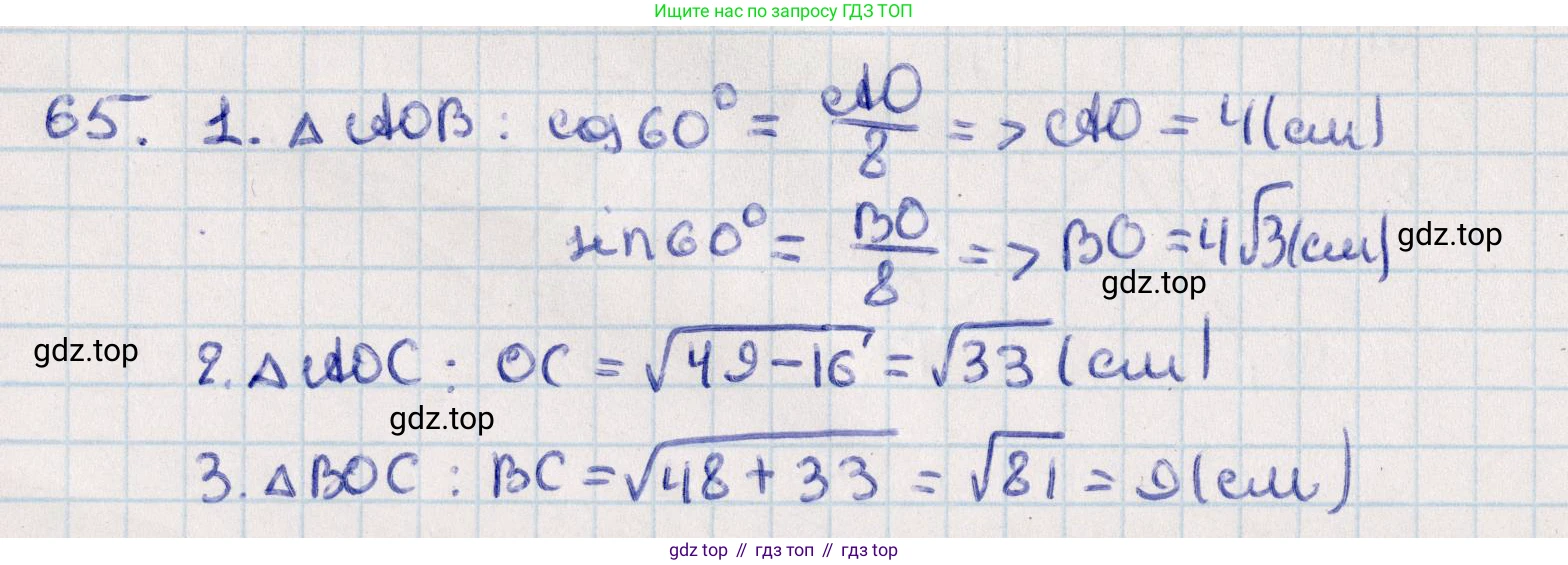 Ищите нас по запросу ГДЗ ТОП
65. 1. △ AOB : cos 60° = AO/8 => AO = 4 (см)
sin 60° = BO/8 => BO = 4√3 (см) gdz.top
gdz.top
gdz.top 2. △ AOC : OC = √(49-16) = √33 (см)
gdz.top
3. △ BOC : BC = √(48+33) = √81 = 9 (см)
gdz top // гдз топ // гдз top